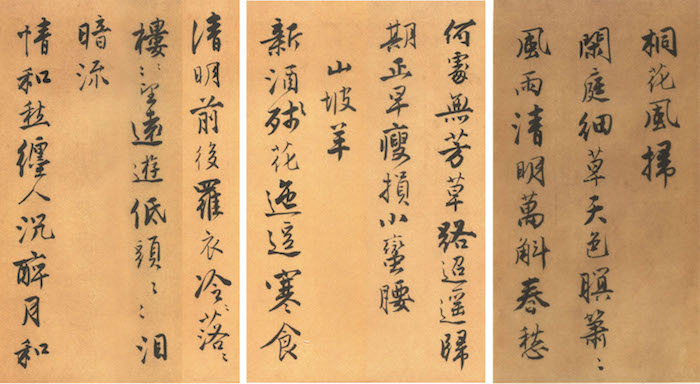 桐花風掃
閑庭細草天色暝簫〻
風雨清明萬斛春愁
何處無芳草路迢遥歸
期正早瘦損小蠻腰
山坡羊
新酒殘花迤逗寒食
清明前後羅衣冷〻落〻
樓〻望遠遊低頭〻〻泪
暗流
情和愁纏人沉醉月和